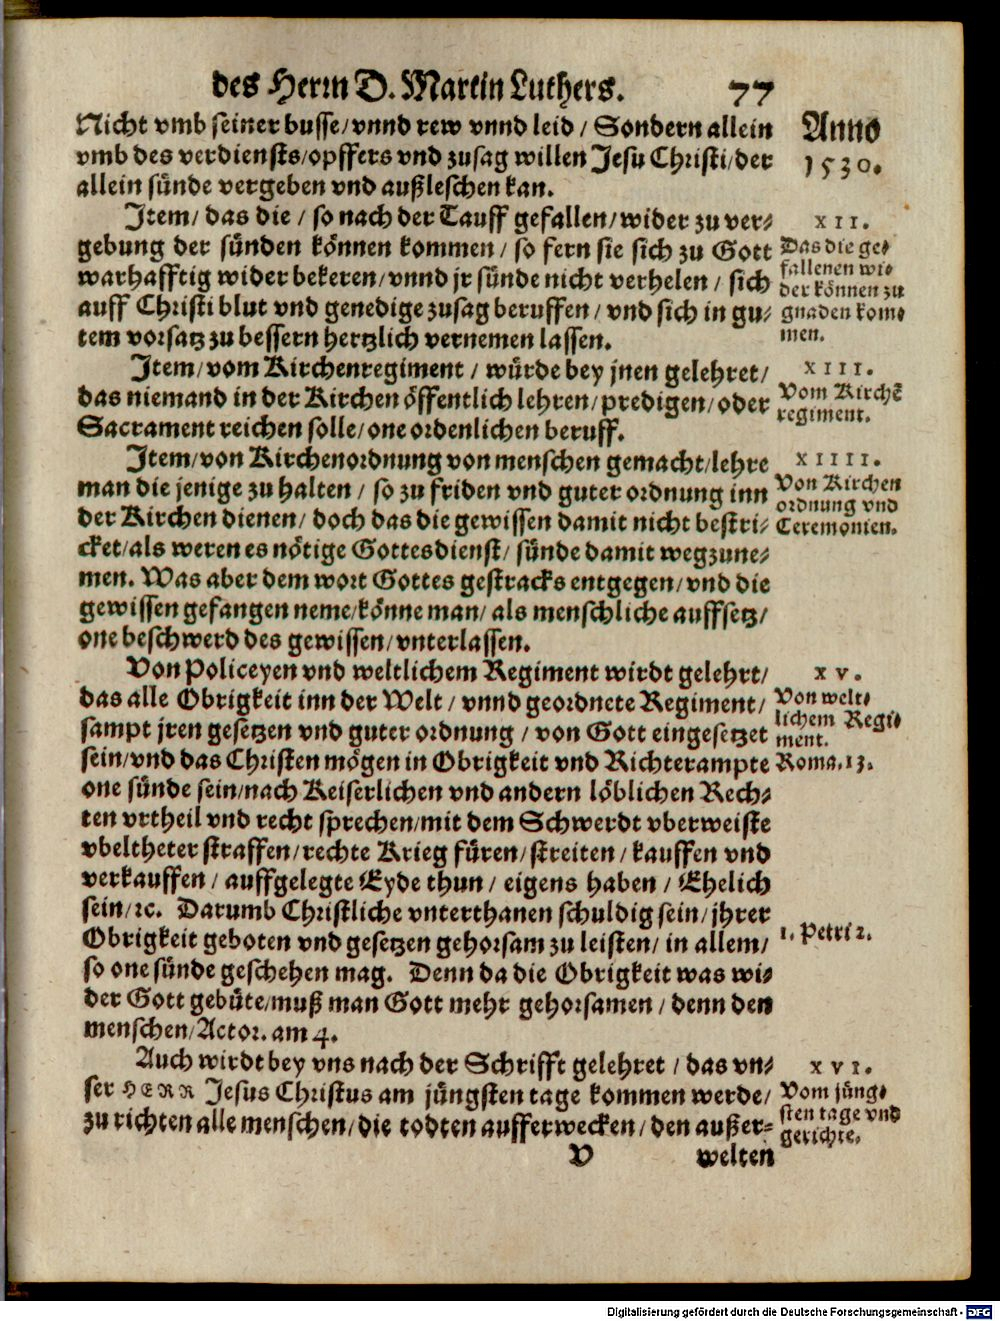 des Herrn D. Martin Luthers. 77
Nicht vmb seiner busse/vnnd rew vnnd leid / Sondern allein
vmb des verdiensts/opffers vnd zusag willen Jesu Christi/der
allein sünde vergeben vnd außleschen kan.
Anno
1530.
Item/ das die / so nach der Tauff gefallen/wider zu ver-
gebung der sünden können kommen / so fern sie sich zu Gott
warhafftig wider bekeren/vnnd jr sünde nicht verhelen / sich
auff Christi blut vnd genedige zusag beruffen / vnd sich in gu-
tem vorsatz zu bessern hertzlich vernemen lassen.
XII.
Das die ge-
fallenen wi-
der können zu
gnaden kom-
men.
Item/vom Kirchenregiment / würde bey jnen gelehret/
das niemand in der Kirchen öffentlich lehren/predigen/oder
Sacrament reichen solle/one ordenlichen beruff.
XIII.
Vom Kirchē
regiment.
Item/von Kirchenordnung von menschen gemacht/lehre
man die jenige zu halten / so zu friden vnd guter ordnung inn
der Kirchen dienen/ doch das die gewissen damit nicht bestri-
cket/als weren es nötige Gottesdienst/ sünde damit wegzune-
men. Was aber dem wort Gottes gestracks entgegen/vnd die
gewissen gefangen neme/könne man/ als menschliche auffsetz/
one beschwerd des gewissen/vnterlassen.
XIIII.
Von Kirchen
ordnung vnd
Ceremonien.
Von Policeyen vnd weltlichem Regiment wirdt gelehrt/
das alle Obrigkeit inn der Welt / vnnd geordnete Regiment/
sampt jren gesetzen vnd guter ordnung / von Gott eingesetzet
sein/vnd das Christen mögen in Obrigkeit vnd Richterampte
one sünde sein/nach Keiserlichen vnd andern löblichen Rech-
ten vrtheil vnd recht sprechen/mit dem Schwerdt vberweiste
vbeltheter straffen/rechte Krieg füren/streiten / kauffen vnd
verkauffen / auffgelegte Eyde thun / eigens haben / Ehelich
sein/ꝛc. Darumb Christliche vnterthanen schuldig sein/jhrer
Obrigkeit geboten vnd gesetzen gehorsam zu leisten/ in allem/
so one sünde geschehen mag. Denn da die Obrigkeit was wi-
der Gott gebüte/muß man Gott mehr gehorsamen / denn den
menschen/Actor. am 4.
XV.
Von welt-
lichem Regi-
ment.
Roma.13.
1. Petri 2.
Auch wirdt bey vns nach der Schrifft gelehret / das vn-
ser HERR Jesus Christus am jüngsten tage kommen werde/
zu richten alle menschen/die todten aufferwecken/den außer-
XVI.
Vom jüng-
sten tage vnd
gerichte.
V welten
Digitalisierung gefördert durch die Deutsche Forschungsgemeinschaft - DFG